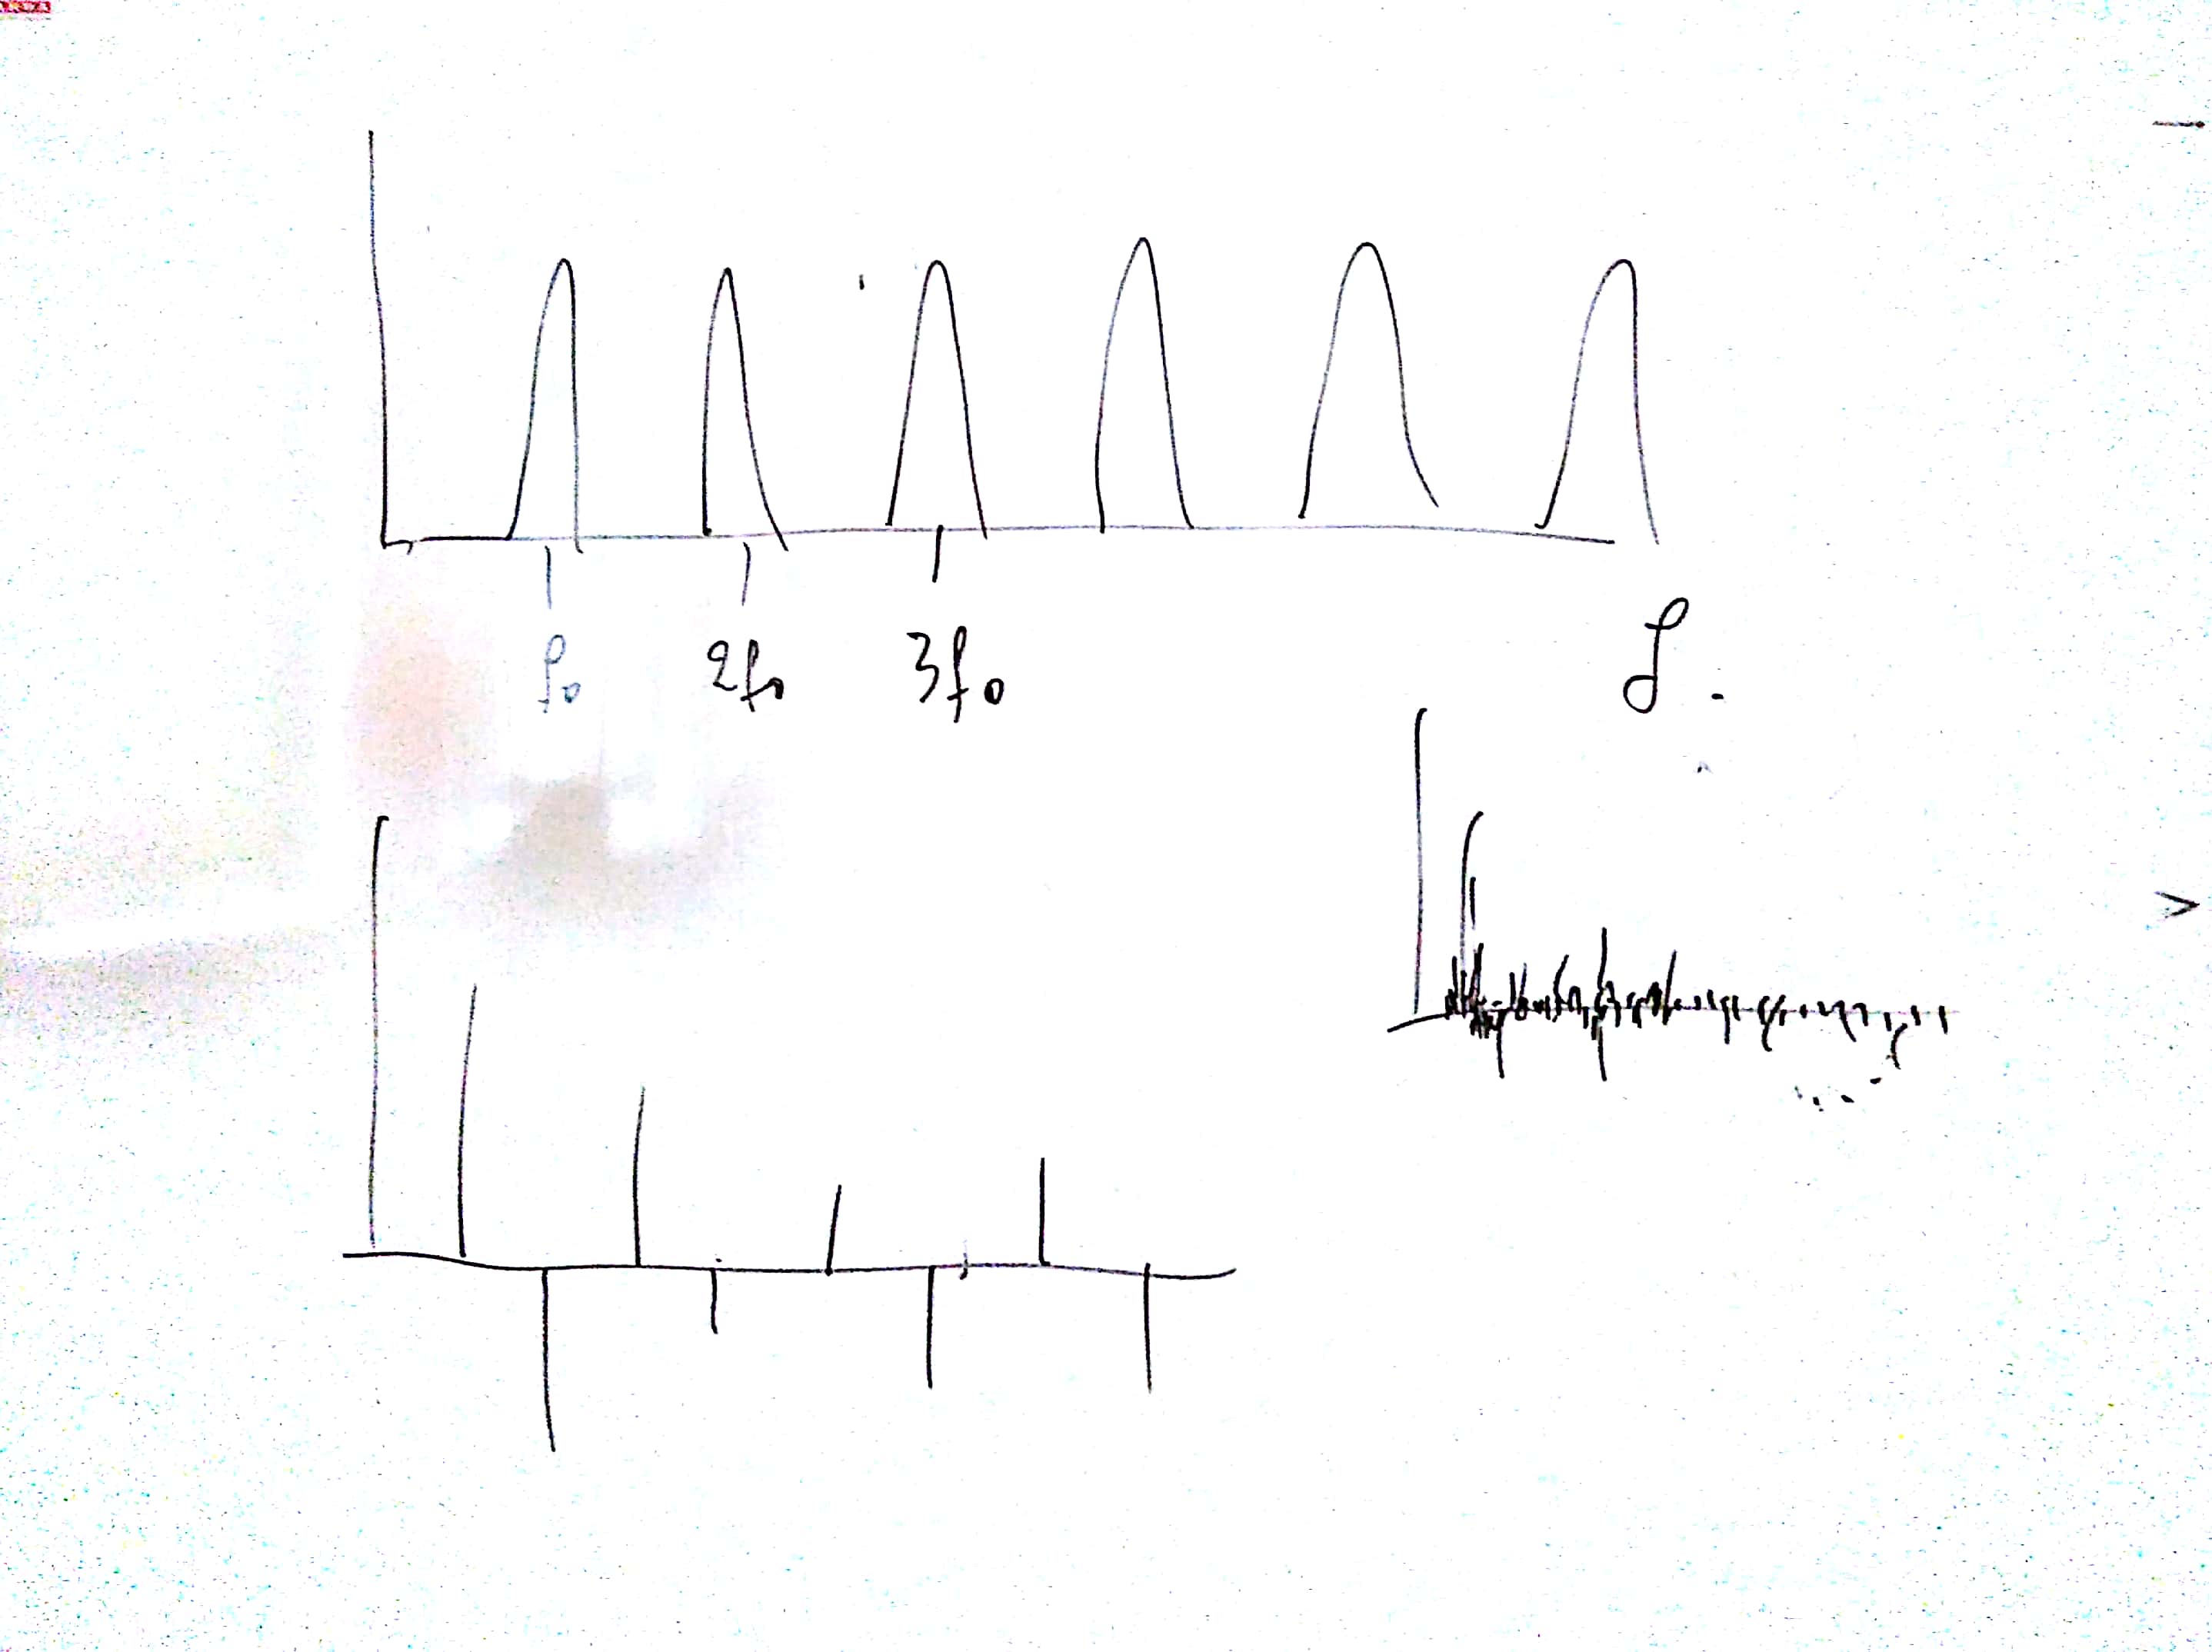 f₀ 2f₀ 3f₀ f.